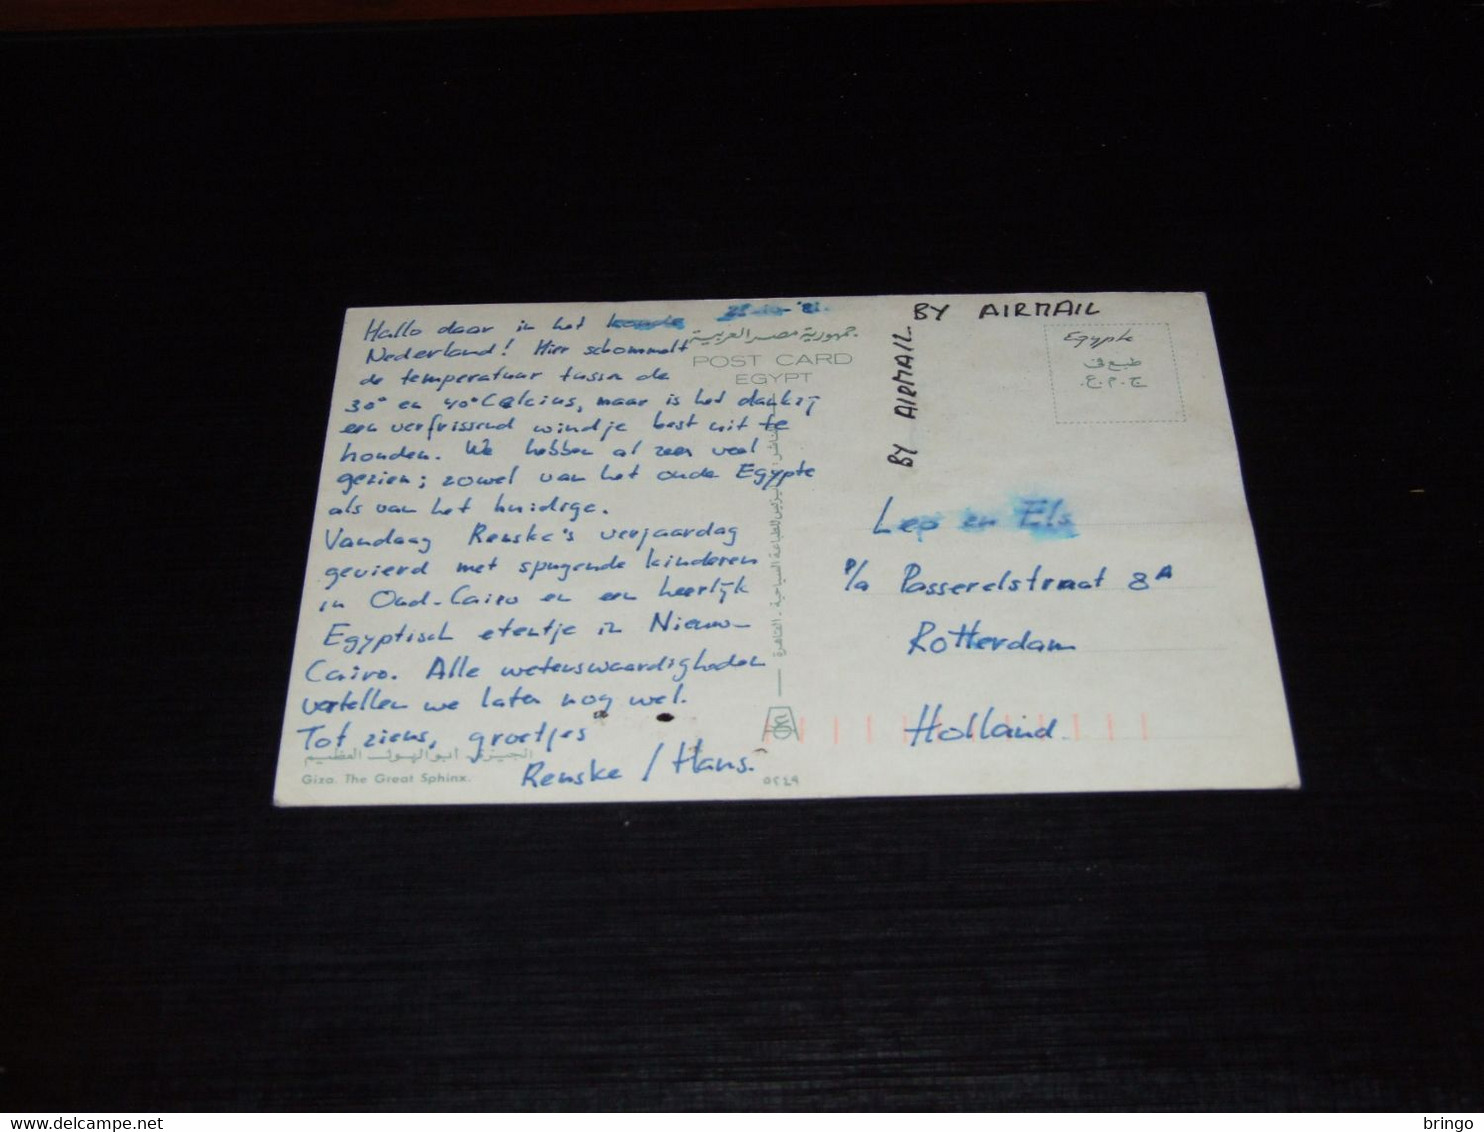 25-10-'81.
Hallo daar in het koude
Nederland! Hier schommelt
de temperatuur tussen de
30° en 40° Celcius, maar is het dankzij
een verfrissend windje best uit te
houden. We hebben al zeer veel
gezien; zowel van het oude Egypte
als van het huidige.
Vandaag Renske's verjaardag
gevierd met spugende kinderen
in Oud-Cairo en een heerlijk
Egyptisch etentje in Nieuw-
Cairo. Alle wetenswaardigheden
vertellen we later nog wel.
Tot ziens, groetjes
Renske / Hans.
الجيزة. أبو الهول العظيم
Giza. The Great Sphinx.
جمهورية مصر العربية
POST CARD
EGYPT
٥٢٤٩
BY AIRMAIL
BY AIRMAIL
Egypte
طبع في
ج.م.ع.
Leo en Els
P/a Passerelstraat 8A
Rotterdam
Holland.
bringo
www.delcampe.net